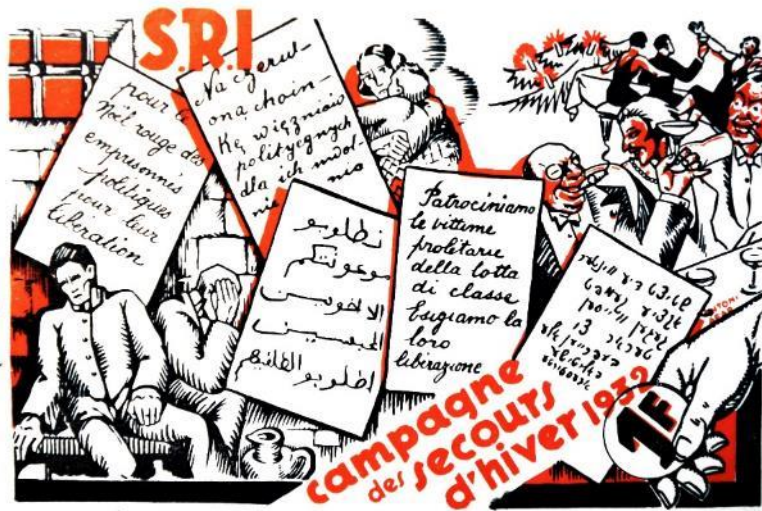 S.R.I
pour le
Noël rouge des
emprisonnés
politiques
pour leur
libération
Na czerwo-
ną choin-
kę więzniów
politycznych
dla ich uwol-
nie nia
نطلوبو
موعونتكم
الالخوين
المحبسين
اطلوبو اطلاقهم
Patrociniamo
le vittime
proletarie
della lotta
di classe
Esigiamo la
loro
liberazione
campagne
des secours
d'hiver 1932
1F